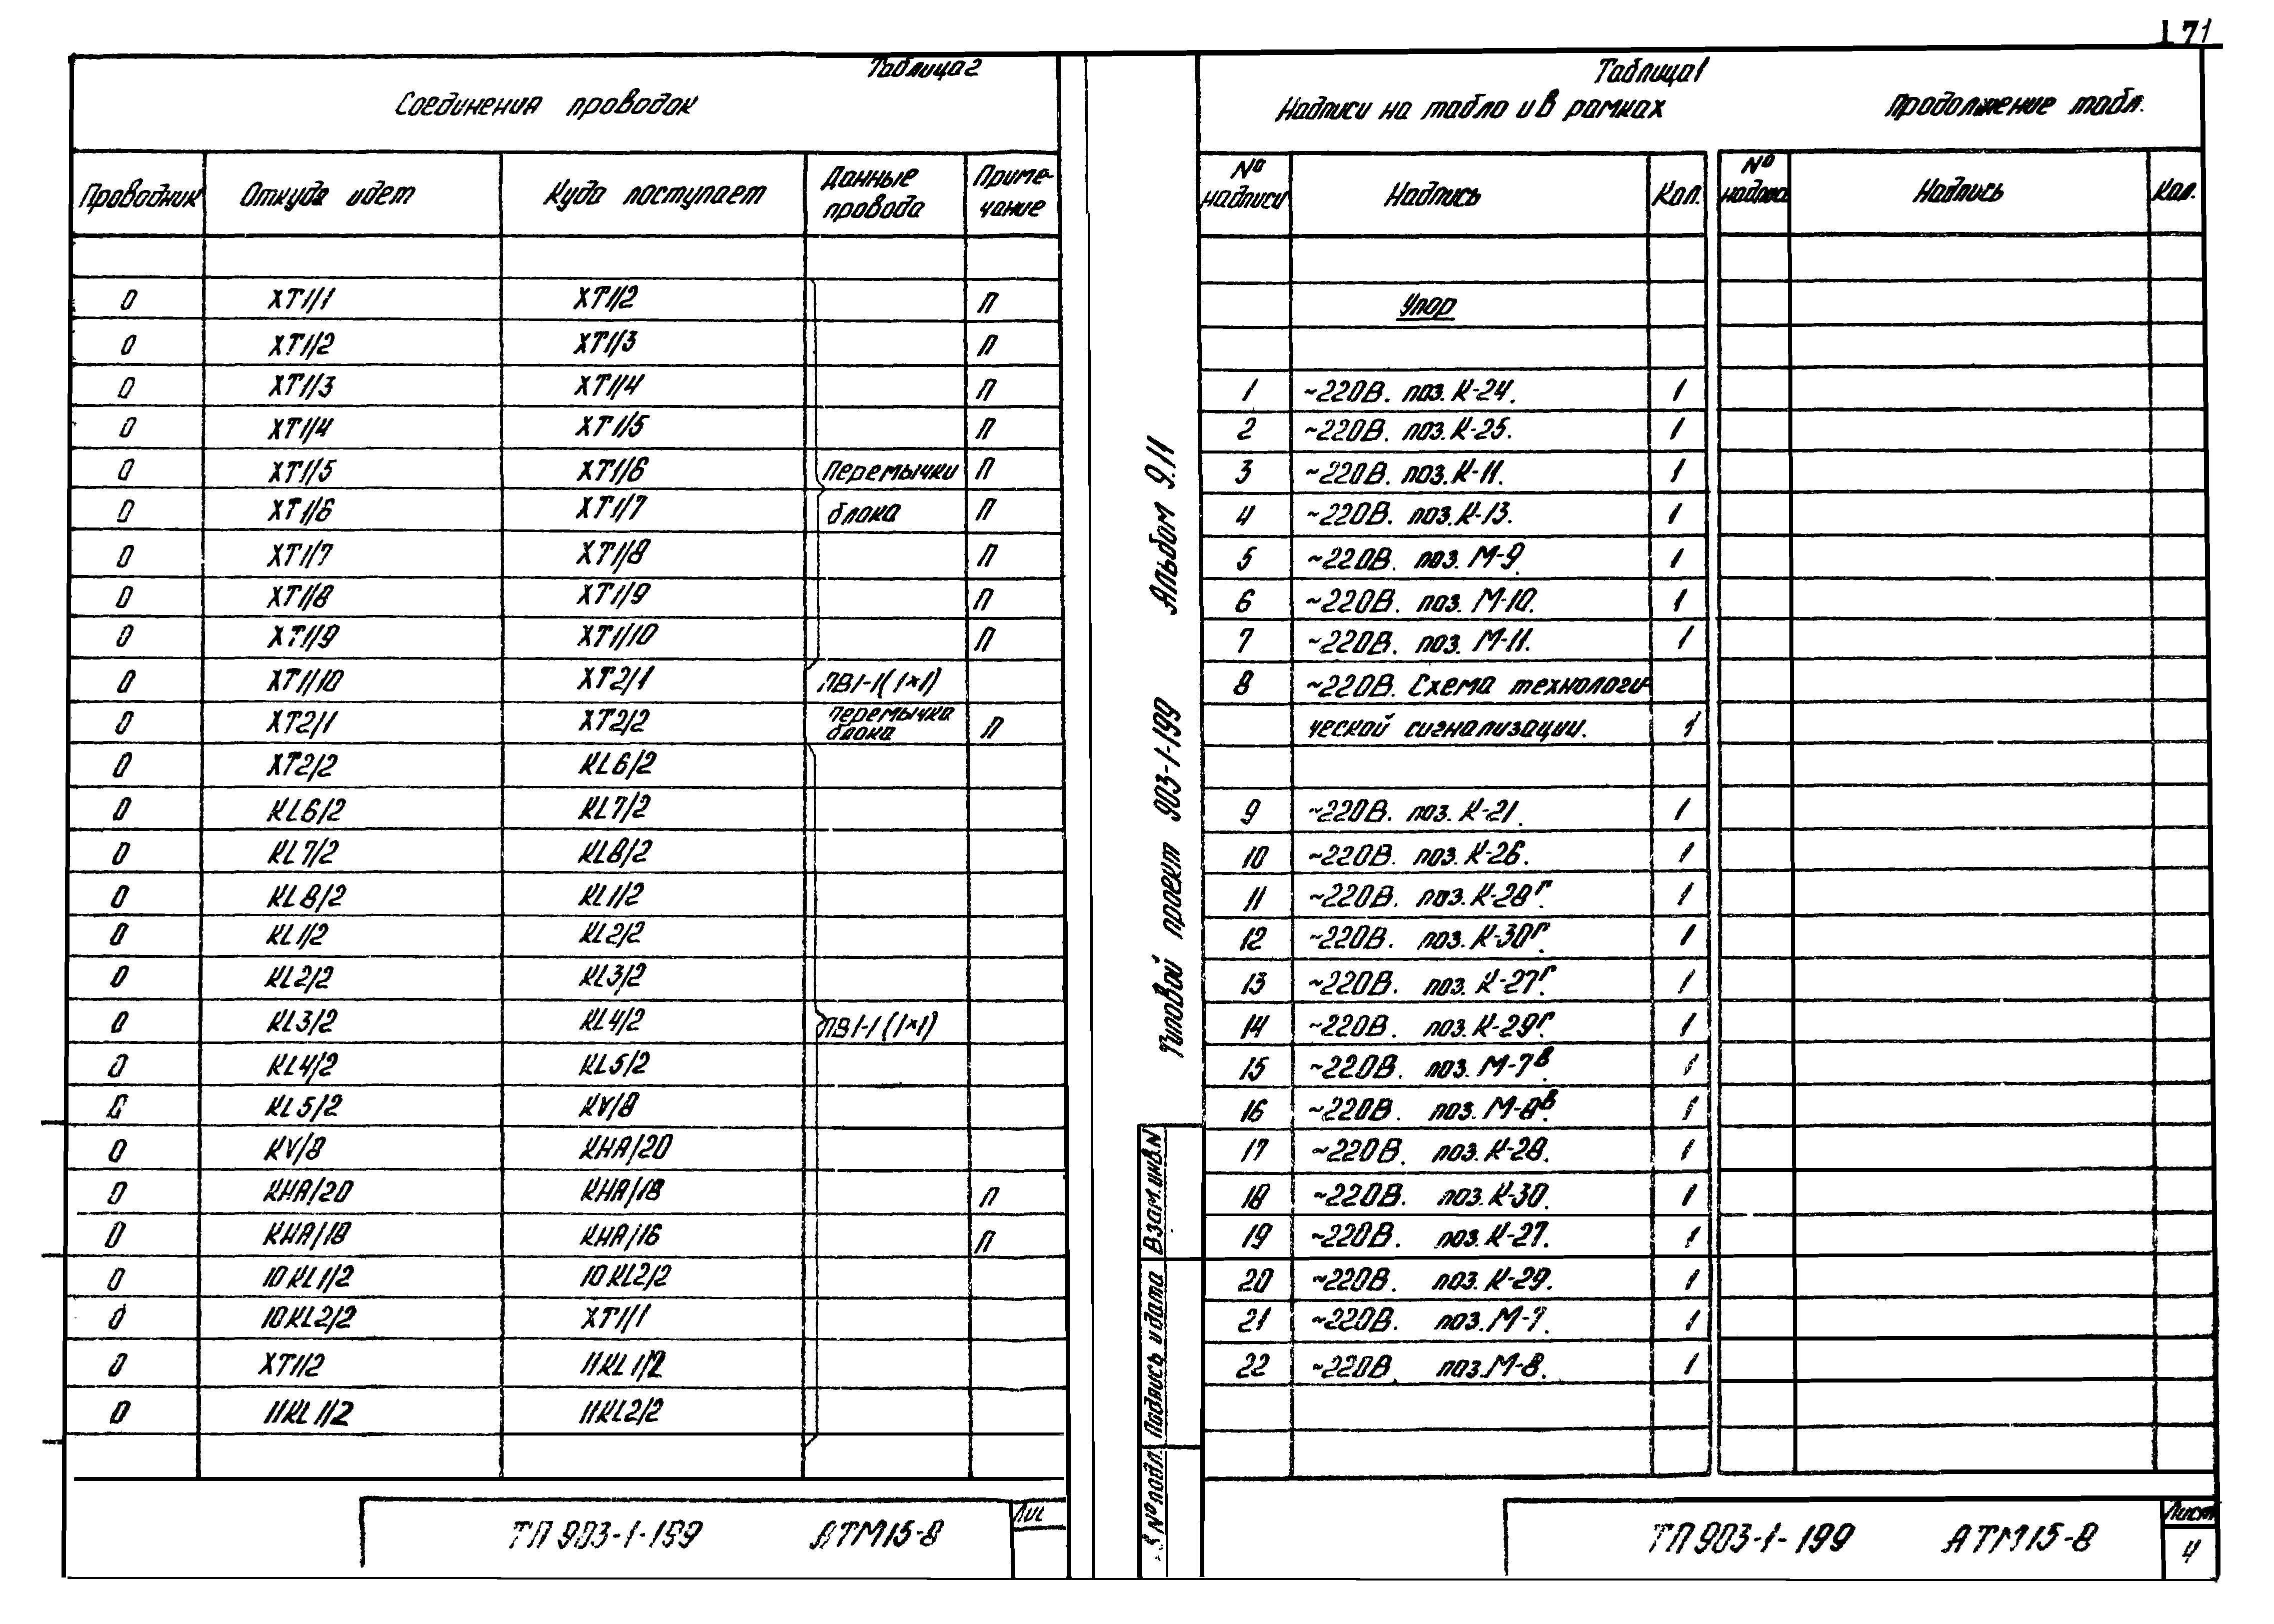 171
Таблица 2
Соединения проводок
Проводник Откуда идет Куда поступает Данные провода Примечание
0 XT1/1 XT1/2 П
0 XT1/2 XT1/3 П
0 XT1/3 XT1/4 П
0 XT1/4 XT1/5 П
0 XT1/5 XT1/6 Перемычки П
0 XT1/6 XT1/7 блока П
0 XT1/7 XT1/8 П
0 XT1/8 XT1/9 П
0 XT1/9 XT1/10 П
0 XT1/10 XT2/1 ПВ1-1(1×1)
0 XT2/1 XT2/2 перемычка блока П
0 XT2/2 KL6/2
0 KL6/2 KL7/2
0 KL7/2 KL8/2
0 KL8/2 KL1/2
0 KL1/2 KL2/2
0 KL2/2 KL3/2
0 KL3/2 KL4/2 ПВ1-1(1×1)
0 KL4/2 KL5/2
0 KL5/2 KV/8
0 KV/8 КНА/20
0 КНА/20 КНА/18 П
0 КНА/18 КНА/16 П
0 10KL1/2 10KL2/2
0 10KL2/2 XT1/1
0 XT1/2 11KL1/2
0 11KL1/2 11KL2/2
ТП 903-1-199 АТМ15-8
Лис
Альбом 9.11
Типовой проект 903-1-199
Взам.инв.N
Подпись и дата
№ подл.
Таблица 1
Надписи на табло и в рамках Продолжение табл.
№ надписи Надпись Кол. № надписи Надпись Кол.
Упор
1 ~220В. поз. К-24. 1
2 ~220В. поз. К-25. 1
3 ~220В. поз. К-11. 1
4 ~220В. поз. К-13. 1
5 ~220В. поз. М-9. 1
6 ~220В. поз. М-10. 1
7 ~220В. поз. М-11. 1
8 ~220В. Схема технологи-
ческой сигнализации. 1
9 ~220В. поз. К-21. 1
10 ~220В. поз. К-26. 1
11 ~220В. поз. К-28г. 1
12 ~220В. поз. К-30г. 1
13 ~220В. поз. К-27г. 1
14 ~220В. поз. К-29г. 1
15 ~220В. поз. М-7в. 1
16 ~220В. поз. М-8в. 1
17 ~220В. поз. К-28. 1
18 ~220В. поз. К-30. 1
19 ~220В. поз. К-27. 1
20 ~220В. поз. К-29. 1
21 ~220В. поз. М-7. 1
22 ~220В. поз. М-8. 1
ТП 903-1-199 АТМ15-8
Лист
4